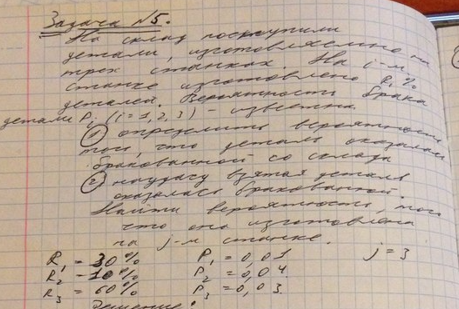 Задача №5.
На склад поступили
детали, изготовляемые на
трёх станках. На i-м
станке изготовлено R_i %
деталей. Вероятность брака
детали P_i (i=1,2,3) - известна
① определить вероятность
того, что деталь оказалась
бракованной со склада
② наудачу взятая деталь
оказалась бракованной.
Найти вероятность того
что она изготовлена
на j-м станке.
R₁ = 30% P₁ = 0,01 j = 3
R₂ = 10% P₂ = 0,04
R₃ = 60% P₃ = 0,03.
Решение: